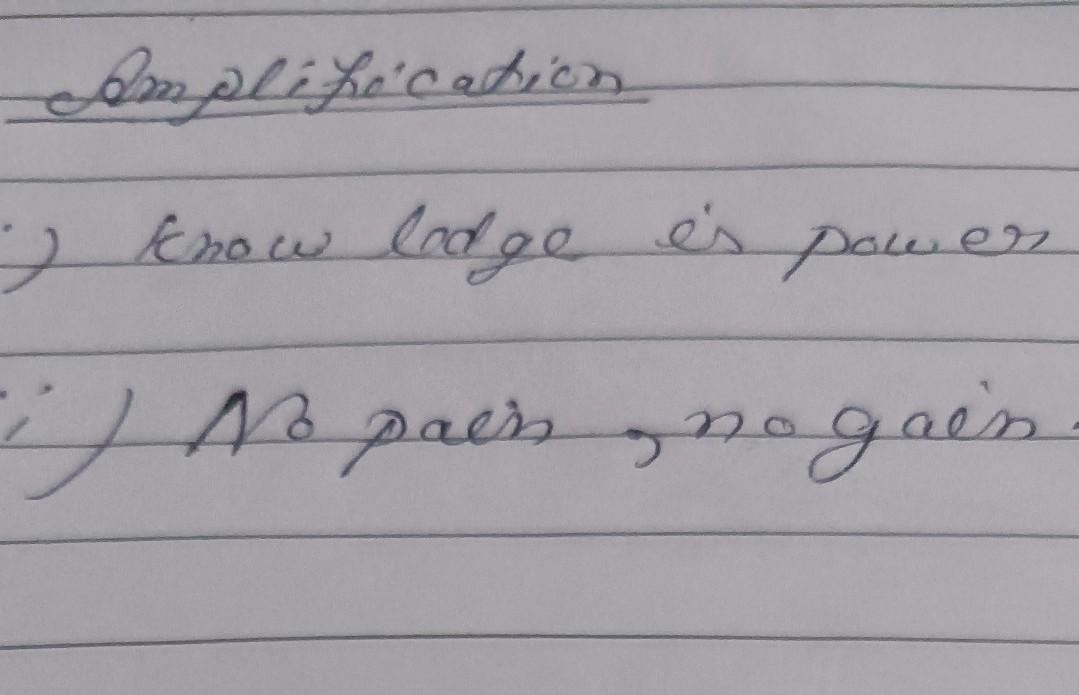 Amplification
i) Know ledge is power
ii) No pain, no gain.